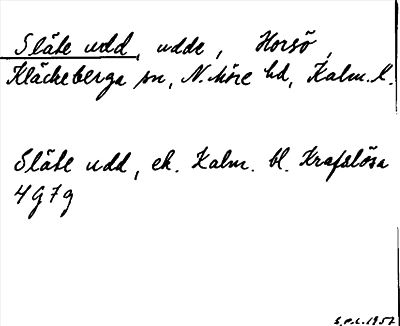 Släte udd, udde, Horsö,
Kläckeberga sn, N. Möre hd, Kalm. l.
Släte udd, ek. Kalm. bl. Krafslösa
4G7g
S.P.L. 1957